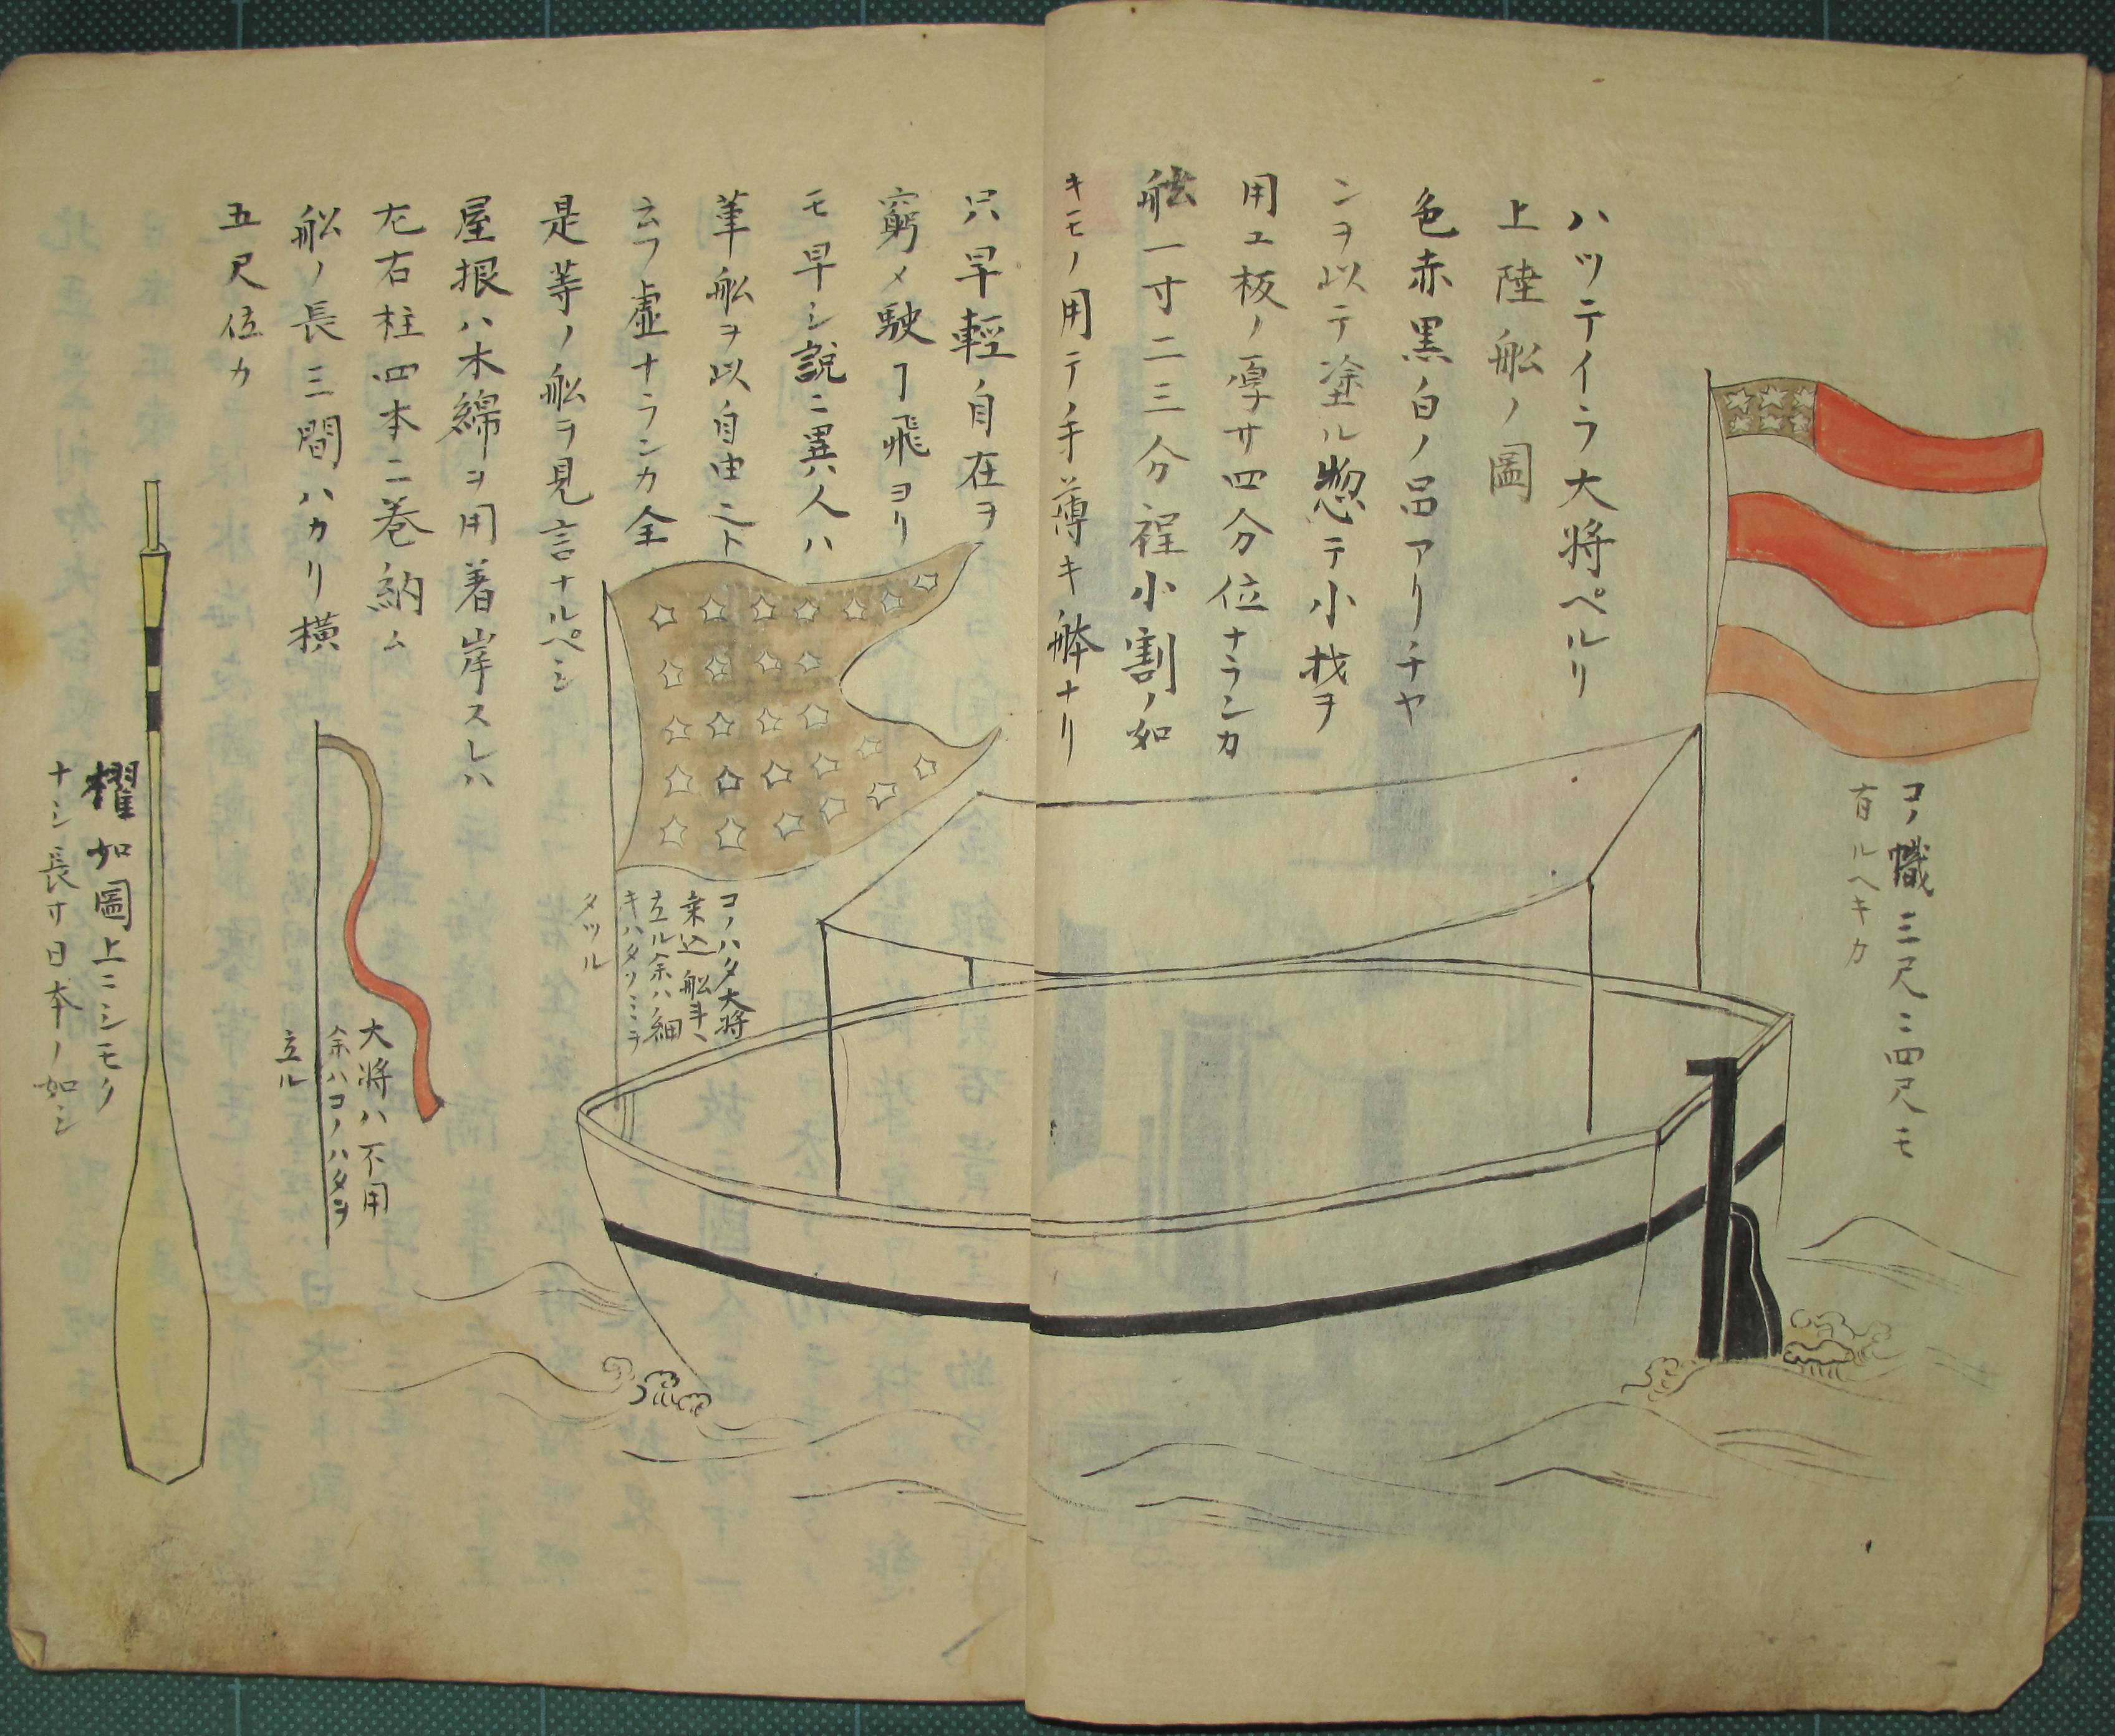 ハツテイラ大将ペルリ
上陸舩ノ圖
色赤黒白ノ品アリチヤ
ンヲ以テ塗ル惣テ小材ヲ
用ユ板ノ厚サ四分位ナランカ
舷一寸二三分程小割ノ如
キモノ用テ手薄キ舩ナリ
コノ幟三尺ニ四尺モ
有ルヘキカ
只早輕自在ヲ
窮メ駛ヿ飛ヨリ
モ早シ説ニ異人ハ
筆舩ヲ以自由ニト
云フ虚ナランカ全
是等ノ舩ヲ見言ナルベシ
屋根ハ木綿ヲ用着岸スレハ
左右柱四本ニ巻納ム
舩ノ長三間ハカリ横
五尺位カ
コノハタ大将
乗込舩ヨヽ
立ル余ハノ細
キハタノミヲ
タツル
大将ハ不用
余ハコノハタヲ
立ル
櫂如圖上ニシモク
ナシ長サ日本ノ如シ